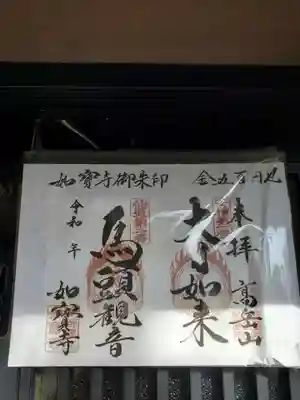 如寶寺御朱印 金 五百円也
奉拝
高岳山
大日如来
馬頭観音
令和 年
如寶寺